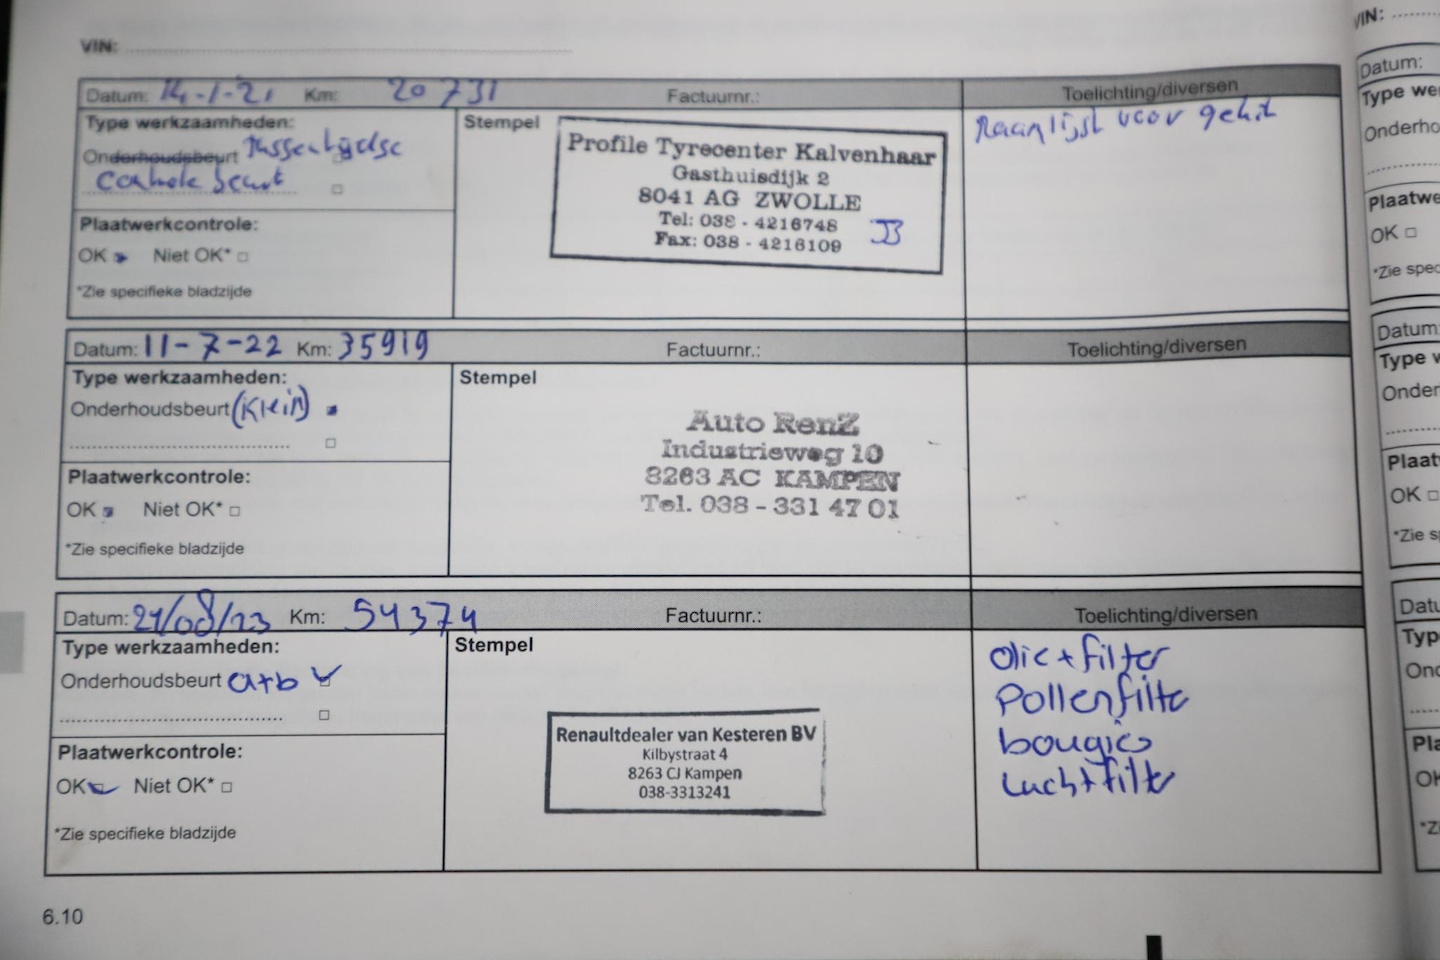 VIN:
Datum: 14-1-21 Km: 20731 Factuurnr.: Toelichting/diversen
Type werkzaamheden:
Onderhoudsbeurt Tussentijdse
Controle beurt
Plaatwerkcontrole:
OK Niet OK*
*Zie specifieke bladzijde
Stempel
Profile Tyrecenter Kalvenhaar
Gasthuisdijk 2
8041 AG ZWOLLE
Tel: 038 - 4216748
Fax: 038 - 4216109
JB
voor
Datum: 11-7-22 Km: 35919 Factuurnr.: Toelichting/diversen
Type werkzaamheden:
Onderhoudsbeurt (Klein)
Plaatwerkcontrole:
OK Niet OK*
*Zie specifieke bladzijde
Stempel
Auto RenZ
Industrieweg 10
8263 AC KAMPEN
Tel. 038 - 331 47 01
Datum: 21/08/23 Km: 54374 Factuurnr.: Toelichting/diversen
Type werkzaamheden:
Onderhoudsbeurt a+b
Plaatwerkcontrole:
OK Niet OK*
*Zie specifieke bladzijde
Stempel
Renaultdealer van Kesteren BV
Kilbystraat 4
8263 CJ Kampen
038-3313241
Olie + filter
Pollenfilter
bougies
Luchtfilter
6.10
VIN:
Datum:
Type we
Onderho
Plaatwe
OK
*Zie spec
Datum:
Type w
Onder
Plaat
OK
*Zie s
Datu
Typ
Ond
Pla
OK
*Z